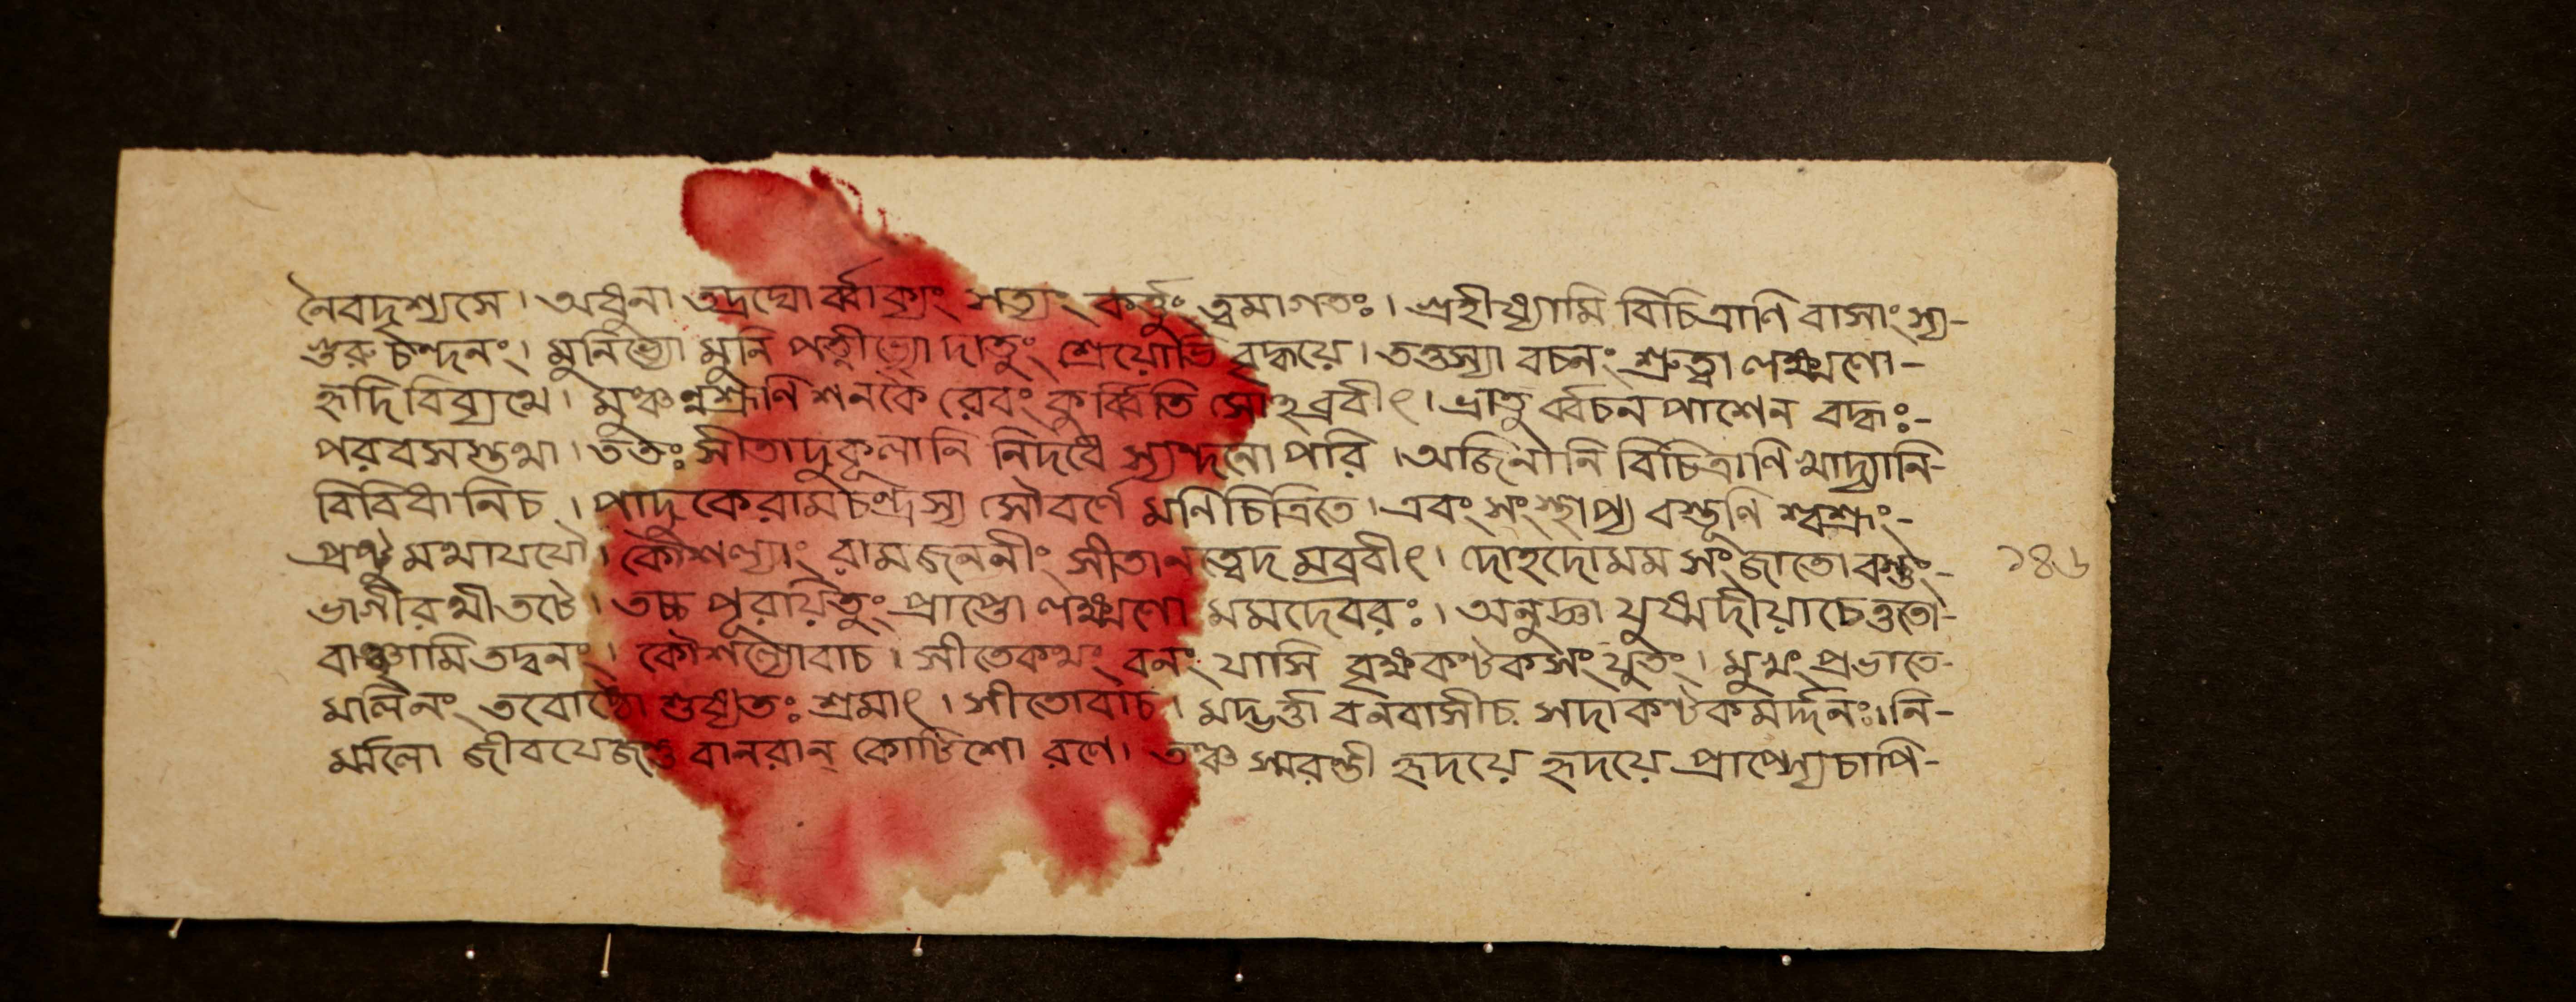 নৈবদৃশ্যসে। অধুনা তদ্রঘো র্ব্বাক্যং সত্যং কর্ত্তুং ত্বমাগতঃ। গ্রহীষ্যামি বিচিত্রাণি বাসাংস্য-
গুরু চন্দনং। মুনিভ্যো মুনি পত্নীভ্যো দাতুং শ্রেয়োভি বৃদ্ধয়ে। তত্তস্যা বচনং শ্রুত্বা লক্ষ্মণো-
হৃদি বিব্যথে। মুঞ্চন্নশ্রূণি শনকৈ রেবং কুর্ব্বিতি সোহব্রবীৎ। ভ্রাতু র্ব্বচন পাশেন বদ্ধঃ-
পরবসস্তথা। ততঃ সীতাদুকূলানি নিদধে স্যন্দনোপরি। অজিনানি বিচিত্রাণি খাদ্যানি-
বিবিধানিচ। পাদুকেরামচন্দ্রস্য সৌবর্ণে মণিচিত্রিতে। এবং সংস্থাপ্য বস্তূণি শ্বশ্রূং-
প্রষ্টুমথাযযৌ। কৌশল্যাং রামজননীং সীতানত্বেদমব্রবীৎ। দোহদোমম সংজাতো বস্তুং-
ভাগীরথীতটে। তচ্চ পূরয়িতুং প্রাপ্তো লক্ষ্মণো মমদেবরঃ। অনুজ্ঞা যুষ্মদীয়াচেত্ততো-
বাঞ্ছামিতদ্বনং। কৌশল্যোবাচ। সীতেকথং বনং যাসি বৃক্ষকণ্টকসংযুতং। মুখং প্রভাতে-
মলিনং তবোষ্ঠো শুষ্যতঃ শ্রমাৎ। সীতোবাচ। মদ্ভর্ত্তা বনবাসীচ সদাকণ্টকমর্দ্দনঃ। নি-
র্ম্মলো জীবযেজন্তু বানরান্ কোটিশো রণে। তঞ্চ স্মরন্তী হৃদয়ে হৃদয়ে প্রাপ্স্যেচাপি-
১৪৬